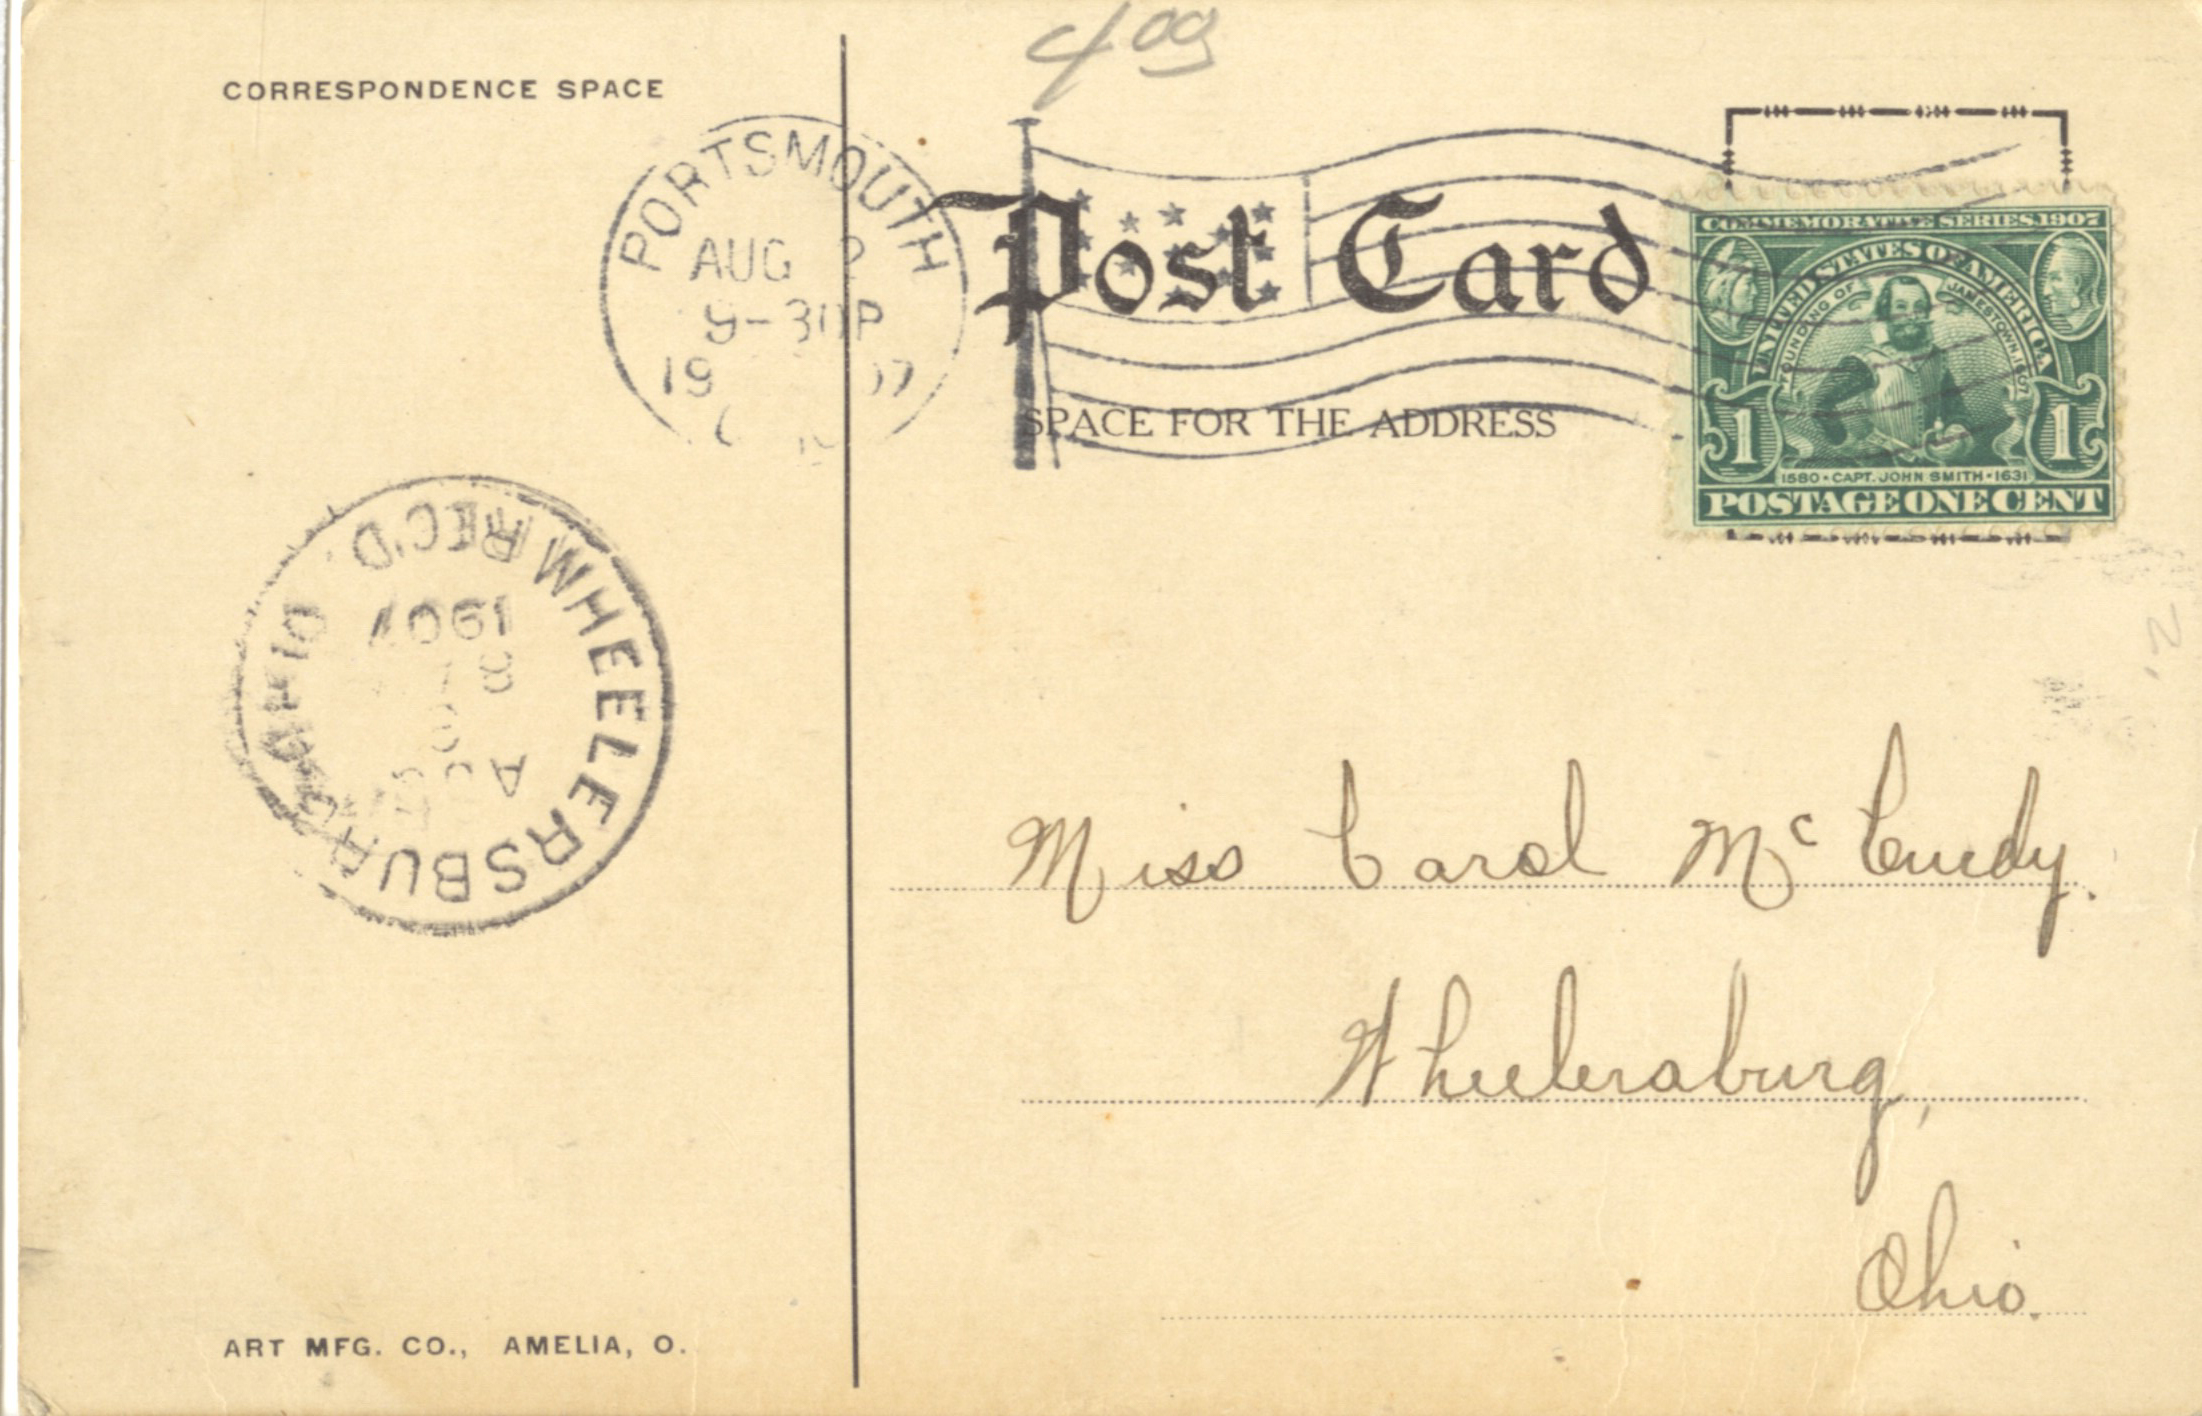 400
CORRESPONDENCE SPACE
PORTSMOUTH
AUG 2
9-30P
19 07
Post Card
SPACE FOR THE ADDRESS
COMMEMORATIVE SERIES 1907
UNITED STATES OF AMERICA
FOUNDING OF JAMESTOWN 1607
1 1
1580 • CAPT. JOHN SMITH • 1631
POSTAGE ONE CENT
WHEELERSBURG OHIO
REC'D
1907
8
A
Miss Carol McCurdy.
Wheelersburg,
Ohio.
ART MFG. CO., AMELIA, O.